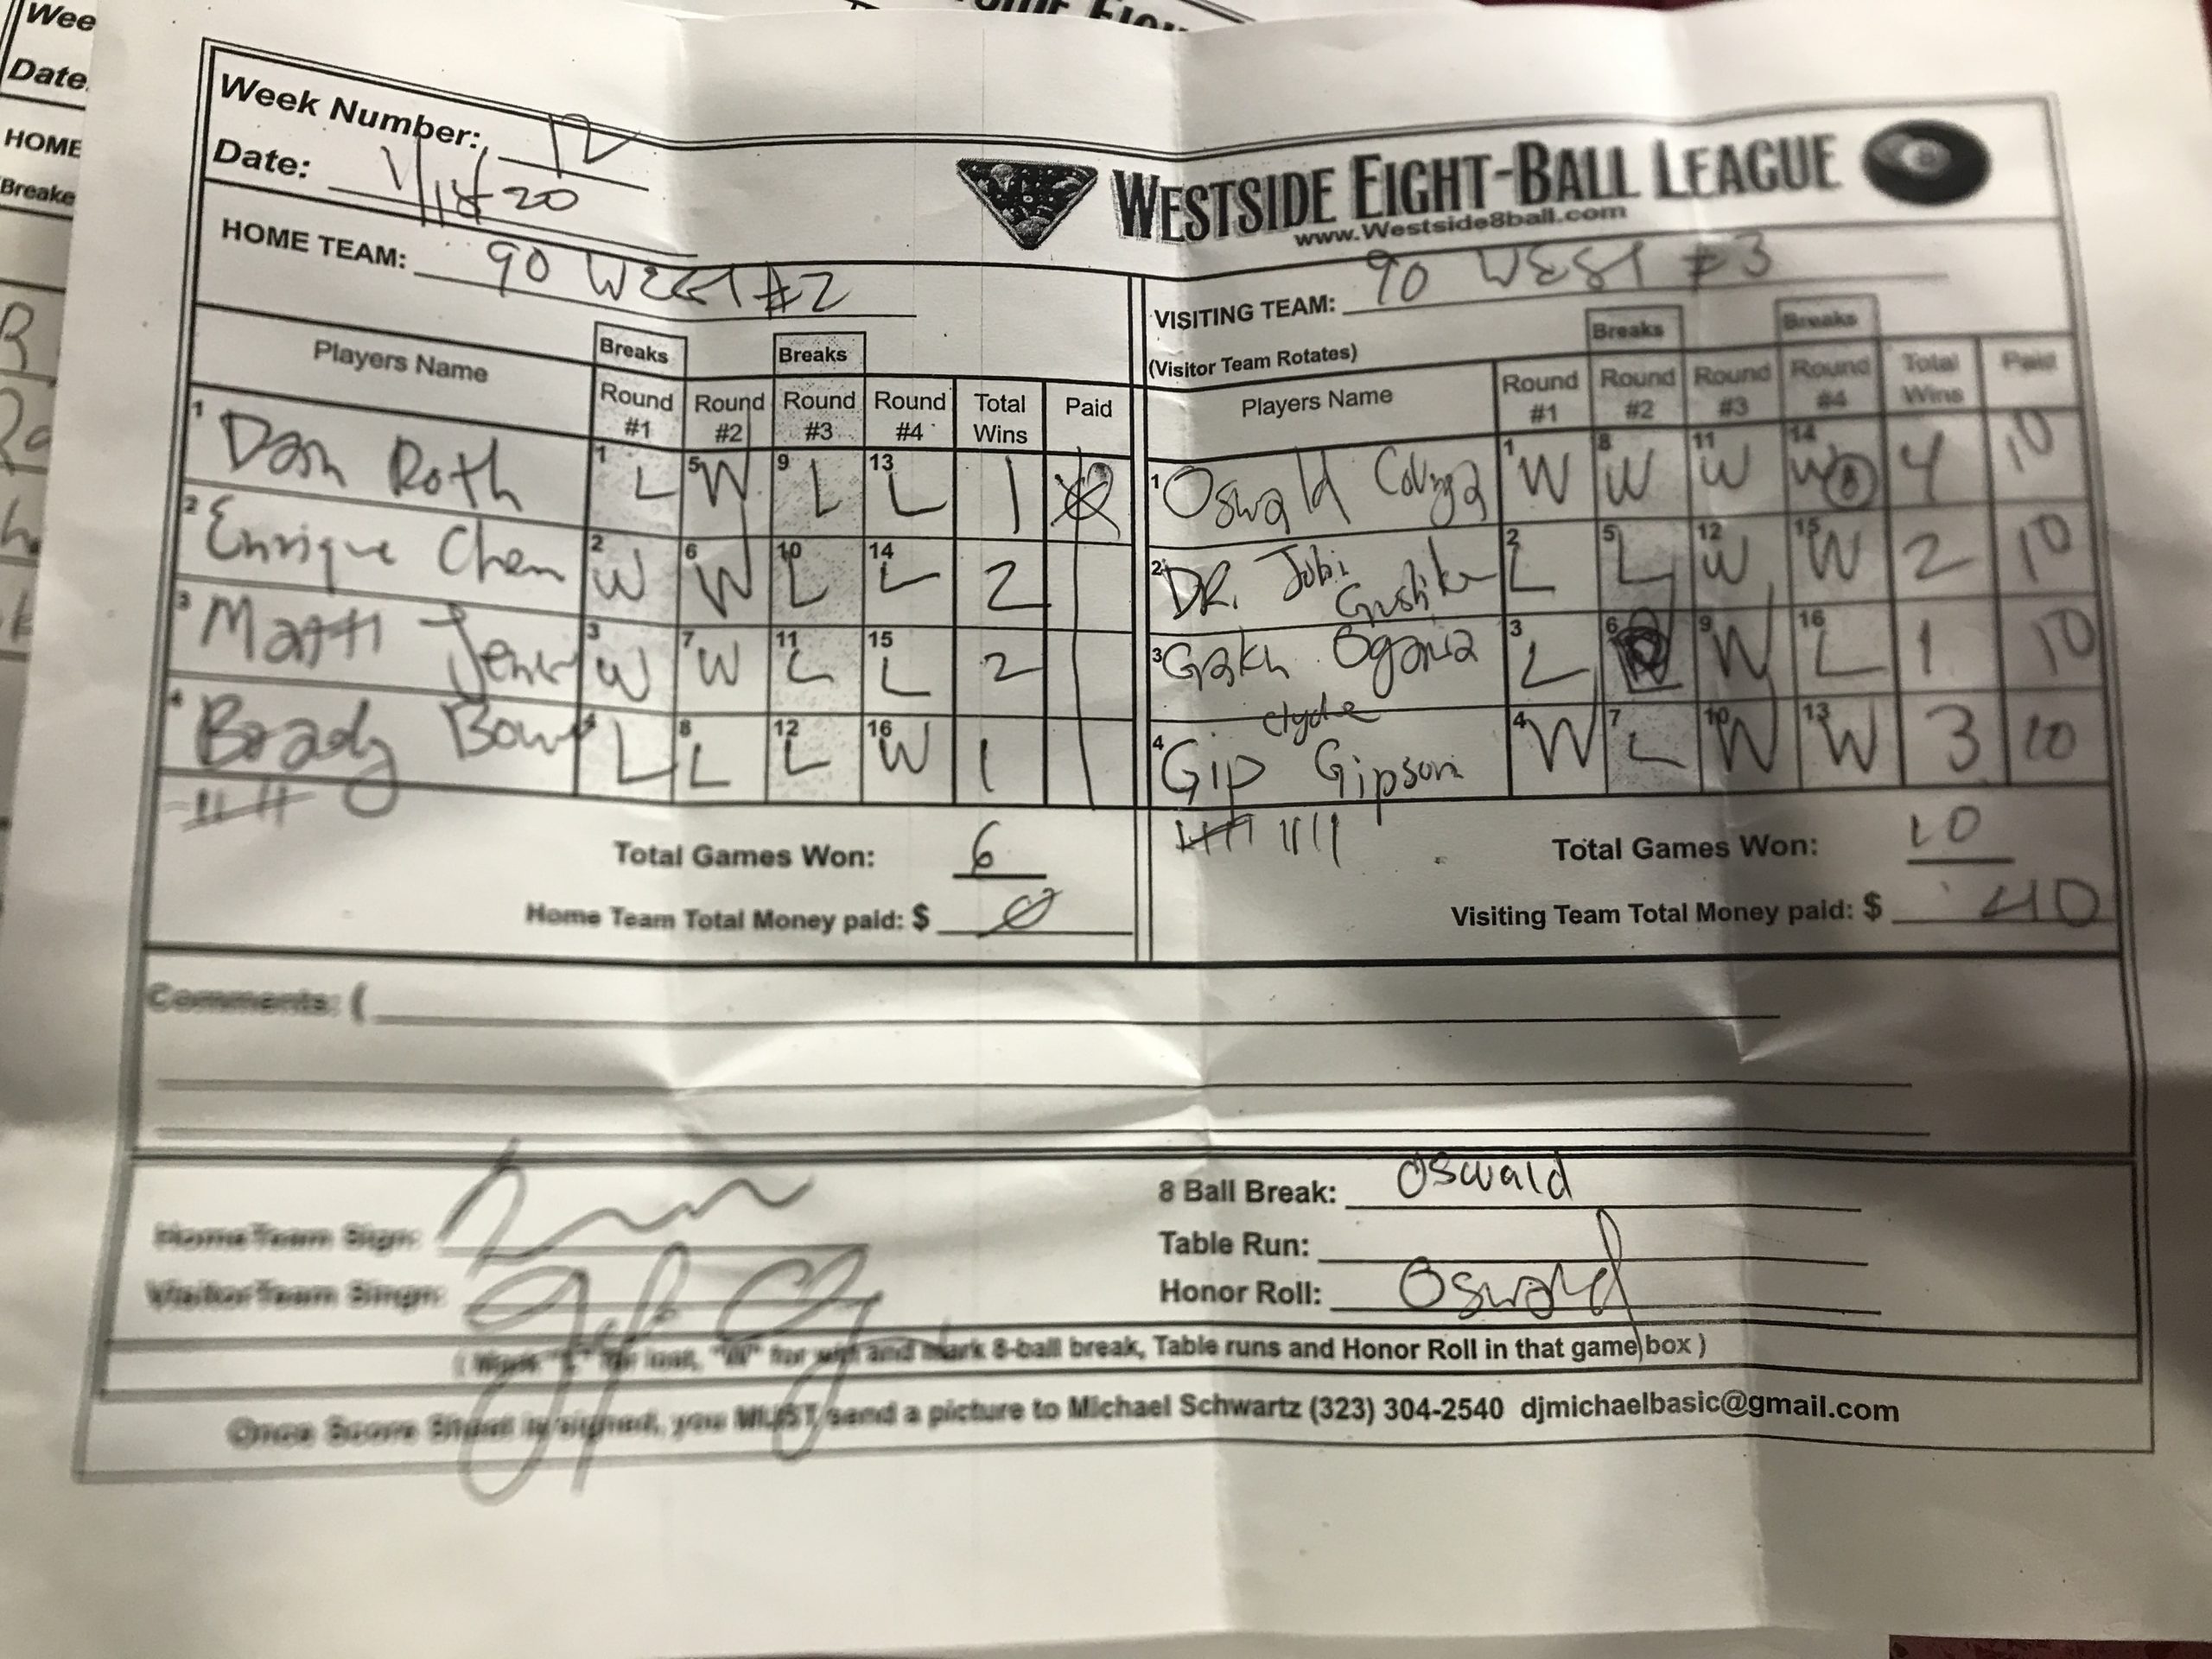 Wee
Date
HOME
Breake
Week Number: 12
Date:
WESTSIDE EIGHT-BALL LEAGUE
www.Westside8ball.com
HOME TEAM: 90 WEST #2
VISITING TEAM: 90 WEST #3
(Visitor Team Rotates)
Players Name Breaks Round #1 Round #2 Breaks Round #3 Round #4 Total Wins Paid
1 Dan Roth 1 L 5 W 9 L 13 L 1
2 Enrique Chen 2 W 6 W 10 L 14 L 2
3 Matti 3 W 7 W 11 L 15 L 2
4 Brady 4 L 8 L 12 L 16 W 1
Total Games Won: 6
Home Team Total Money paid: $ 0
Players Name Round #1 Breaks Round #2 Round #3 Breaks Round #4 Total Wins Paid
1 Oswald 1 W 8 W 11 W 14 W 8 4 10
2 DR. Jobi 2 L 5 L 12 W 15 W 2 10
3 Ogawa 3 L 6 9 W 16 L 1 10
clyde
4 Gip Gipson 4 W 7 L 10 W 13 W 3 10
Total Games Won: 10
Visiting Team Total Money paid: $ 40
Comments: (
Home Team Sign:
Visitor Team Singn:
8 Ball Break: Oswald
Table Run:
Honor Roll: Oswald
( Mark "L" for lost, "W" for win and mark 8-ball break, Table runs and Honor Roll in that game box )
Once Score Sheet is signed, you MUST send a picture to Michael Schwartz (323) 304-2540 djmichaelbasic@gmail.com